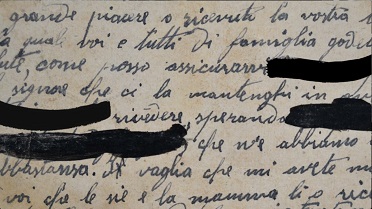 grande piacere o ricenuto la vostra
quali voi e tutti di famiglia gode
come posso assicurarvi
signore che ci la mantenghi in
rivedere, sperando
che n'e abbiamo
bbastanza. Il vaglia che mi avete m
voi che le sie e la mamma li o rice